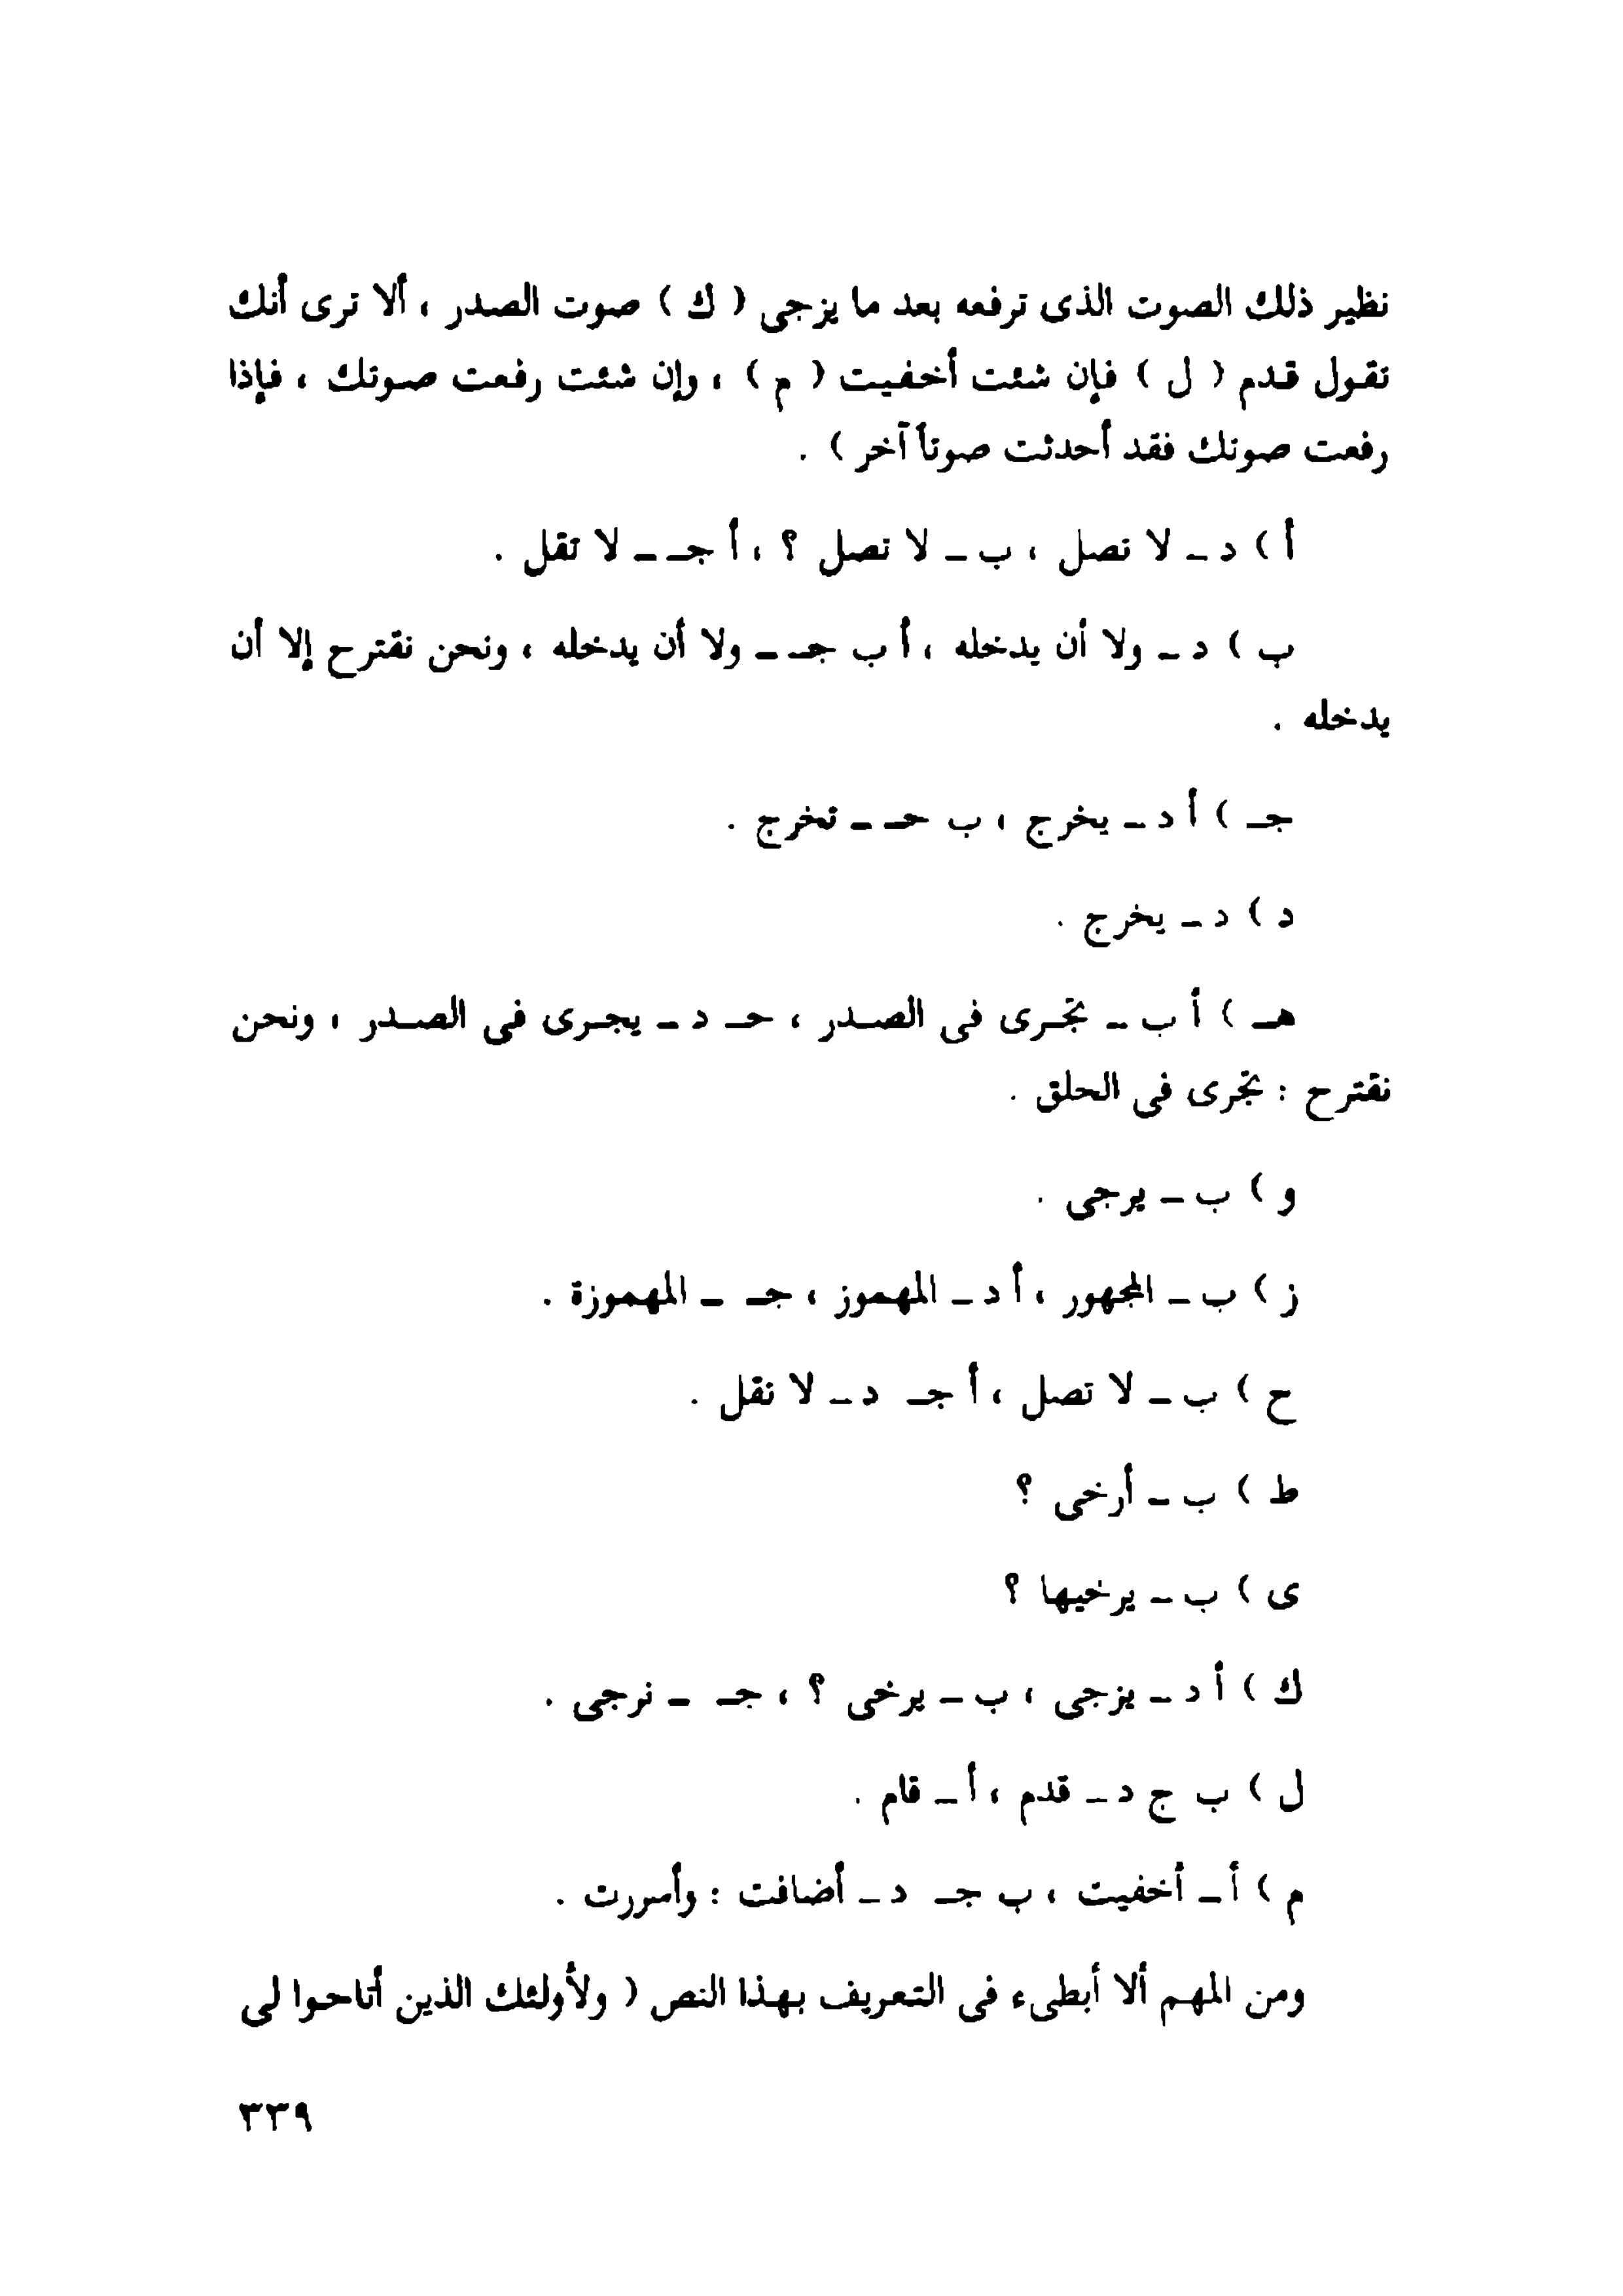 نظير ذلك الصوت الذى ترفعه بعد ما يزجى ( ك ) صوت الصدر ، ألا ترى أنك
تقول قدم ( ل ) فإن شئت أخفيت ( م ) ، وإن شئت رفعت صوتك ، فإذا
رفعت صوتك فقد أحدثت صوتاً آخر ) .
أ ) د ــ لا تصل ، ب ــ لا تصل ؟ ، أ جـ ــ لا تقل .
ب ) د ــ ولا أن يدخله ، أ ب جـ ــ ولا أن يدخله ، ونحن نقترح إلا أن
يدخله .
جـ ) أ د ــ يخرج ، ب حـ ــ تخرج .
د ) د ــ يخرج .
هـ ) أ ب ــ تجرى فى الصدر ، حـ د ــ يجرى فى الصدر ، ونحن
نقترح : تجرى فى الحلق .
و ) ب ــ يرجى .
ز ) ب ــ المجهور ، أ د ــ المهموز ، جـ ــ المهموزة .
ح ) ب ــ لا تصل ، أ جـ د ــ لا نقل .
ط ) ب ــ أرخى ؟
ى ) ب ــ يرخيها ؟
ك ) أ د ــ يزجى ، ب ــ يرخى ؟ ، جـ ــ نرجى .
ل ) ب ج د ــ قدم ، أ ــ قام .
م ) أ ــ أخفيت ، ب جـ د ــ أضافت : وأسررت .
ومن المهم ألا أبطىء فى التعريف بهذا النص ( ولأولئك الذين أتاحوا لى
٣٣٩